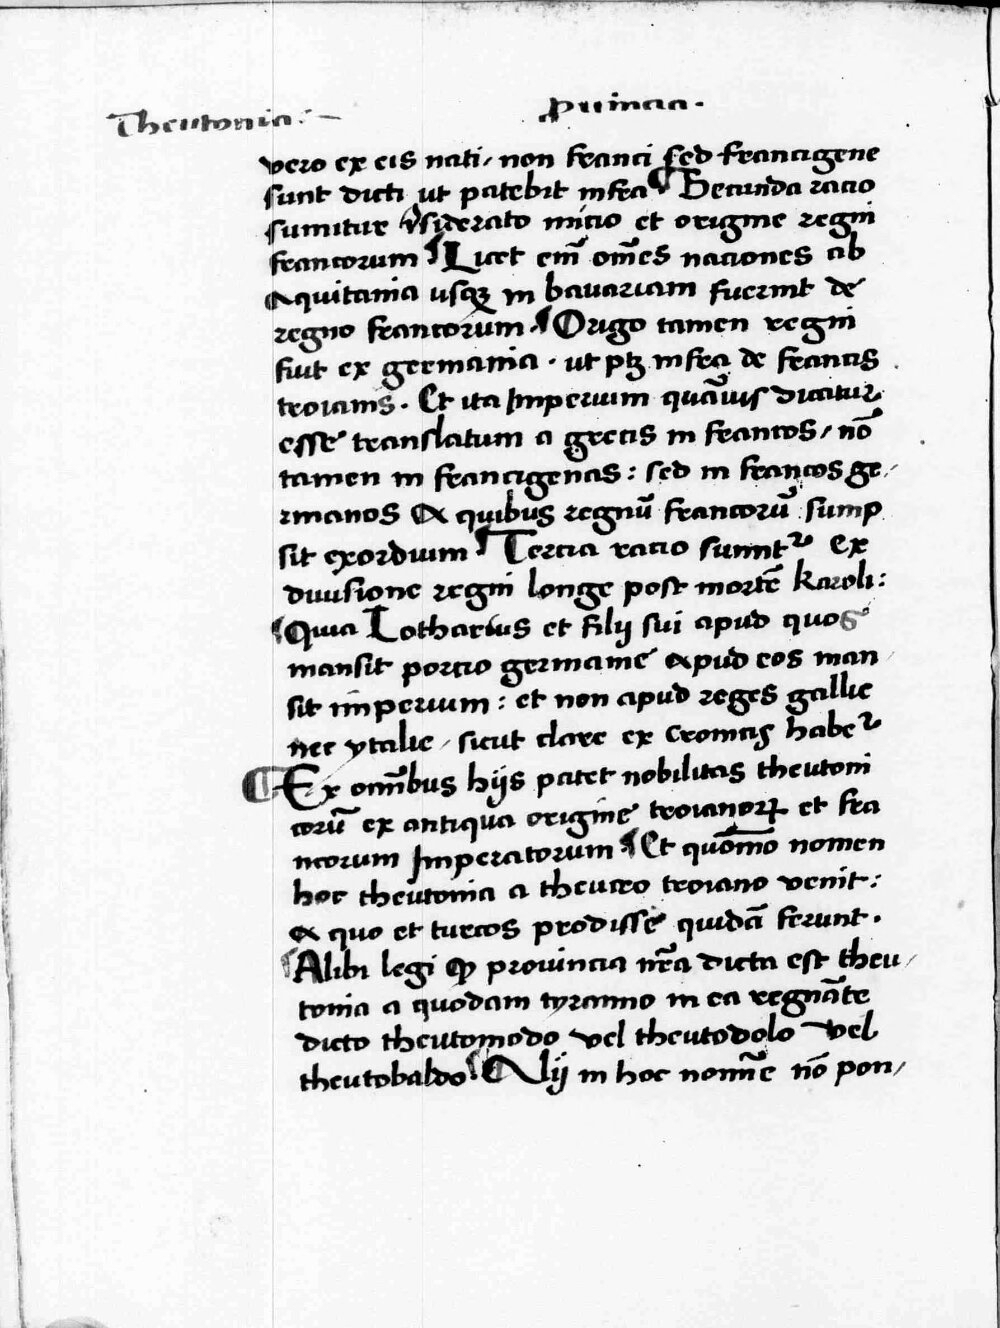 Theutonia:
Pꝛimaa.
vero ex eis nati, non franci sed francigene
sunt dicti ut patebit infra ¶ Secunda racio
sumitur ꝯsiderato inicio et origine regni
francorum ¶ Licet em̄ om̄es naciones ab
aquitania usqꝫ in bauariam fuerint de
regno francorum. ¶ Origo tamen regni
fuit ex germania. ut ptꝫ infra de francis
troianis. Et ita Imperium quāuis dicatur
esse translatum a grecis in francos, nō
tamen in francigenas: sed in francos ge,
rmanos A quibus regnū francorū sump
sit exordium ¶ Tercia racio sumitᷣ ex
diuisione regni longe post mortē karoli:
¶ Quia Lotharius et filij sui apud quos
mansit porcio germanie apud eos man,
sit imperium: et non apud reges gallie
nec ytalie, sicut clare ex cronicis habeᷣ
¶ Ex omībus hijs patet nobilitas theutoni
corū ex antiqua origine troianoꝝ et fra
ncorum Imperatorum ¶ Et quōmo nomen
hoc theutonia a theucro troiano venit:
a quo et turcos prodisse quidā ferunt.
¶ Alibi legi ꝙ prouincia nr̄a dicta est theu,
tonia a quodam tyranno in ea regnāte
dicto theutomodo vel theutodolo vel
theutobaldo. ¶ Alij in hoc nomīe nō pon,